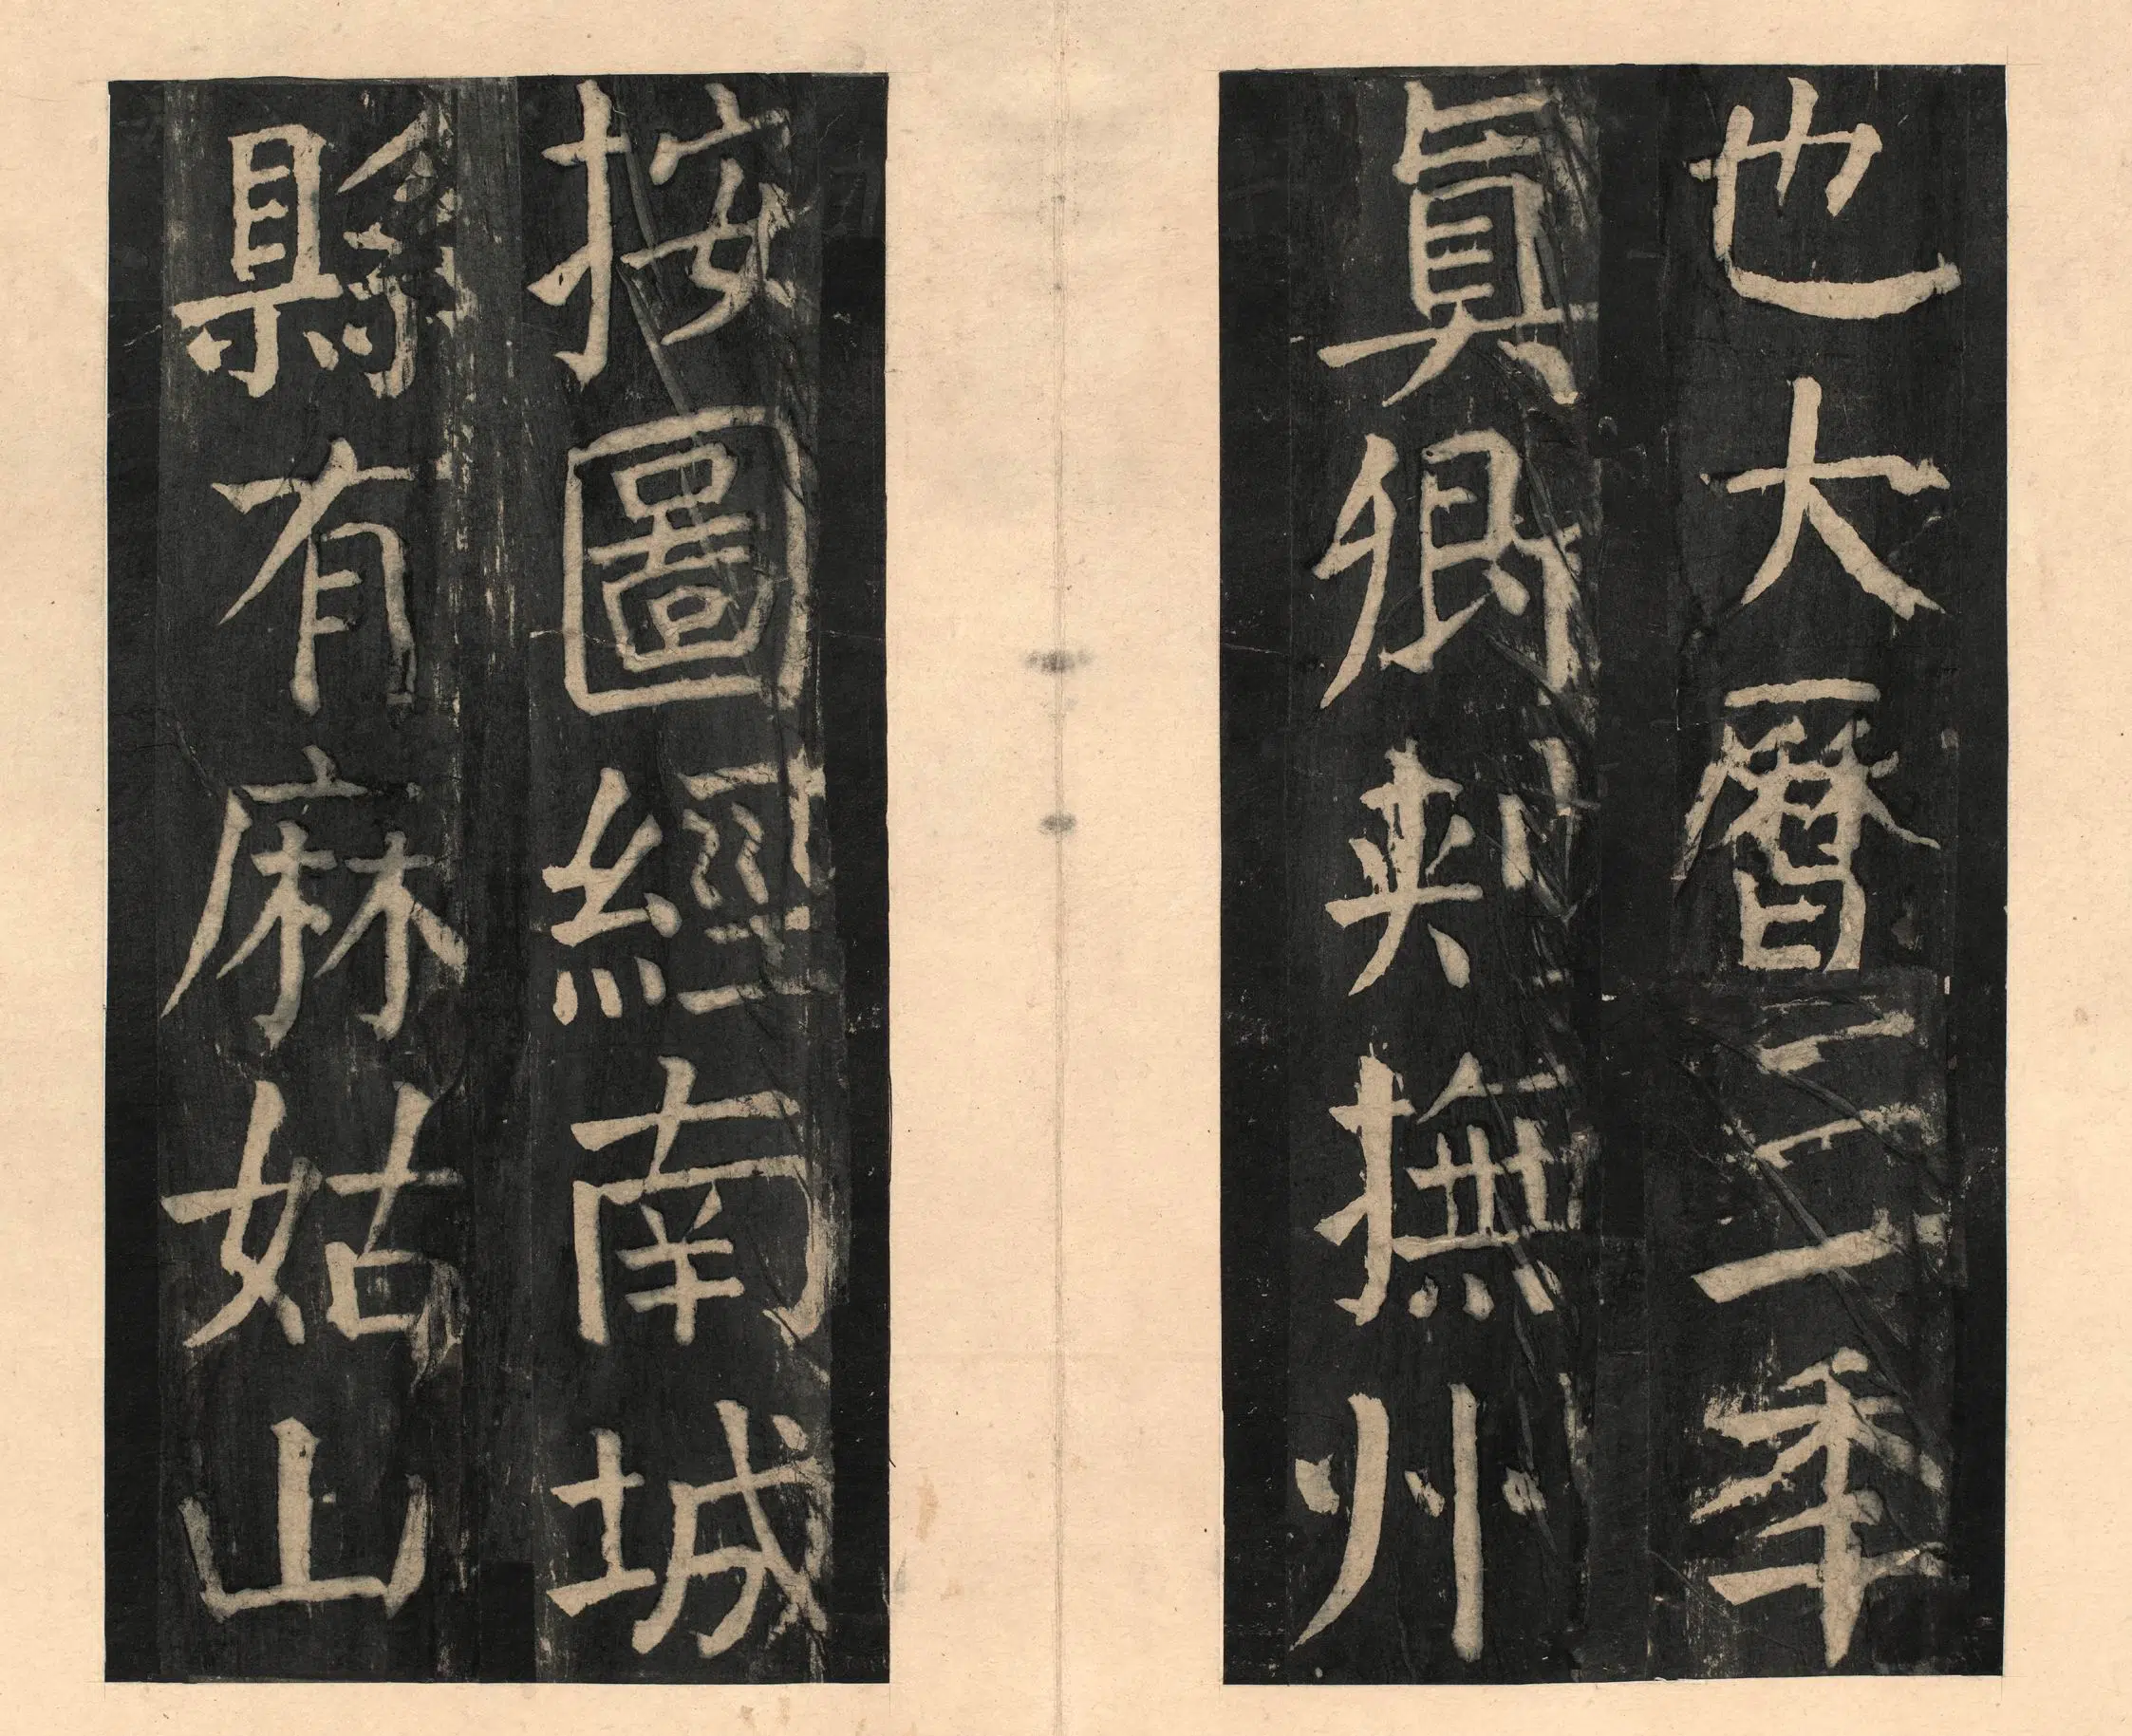 也大曆三年
真卿刺撫州
按圖經南城
縣有麻姑山